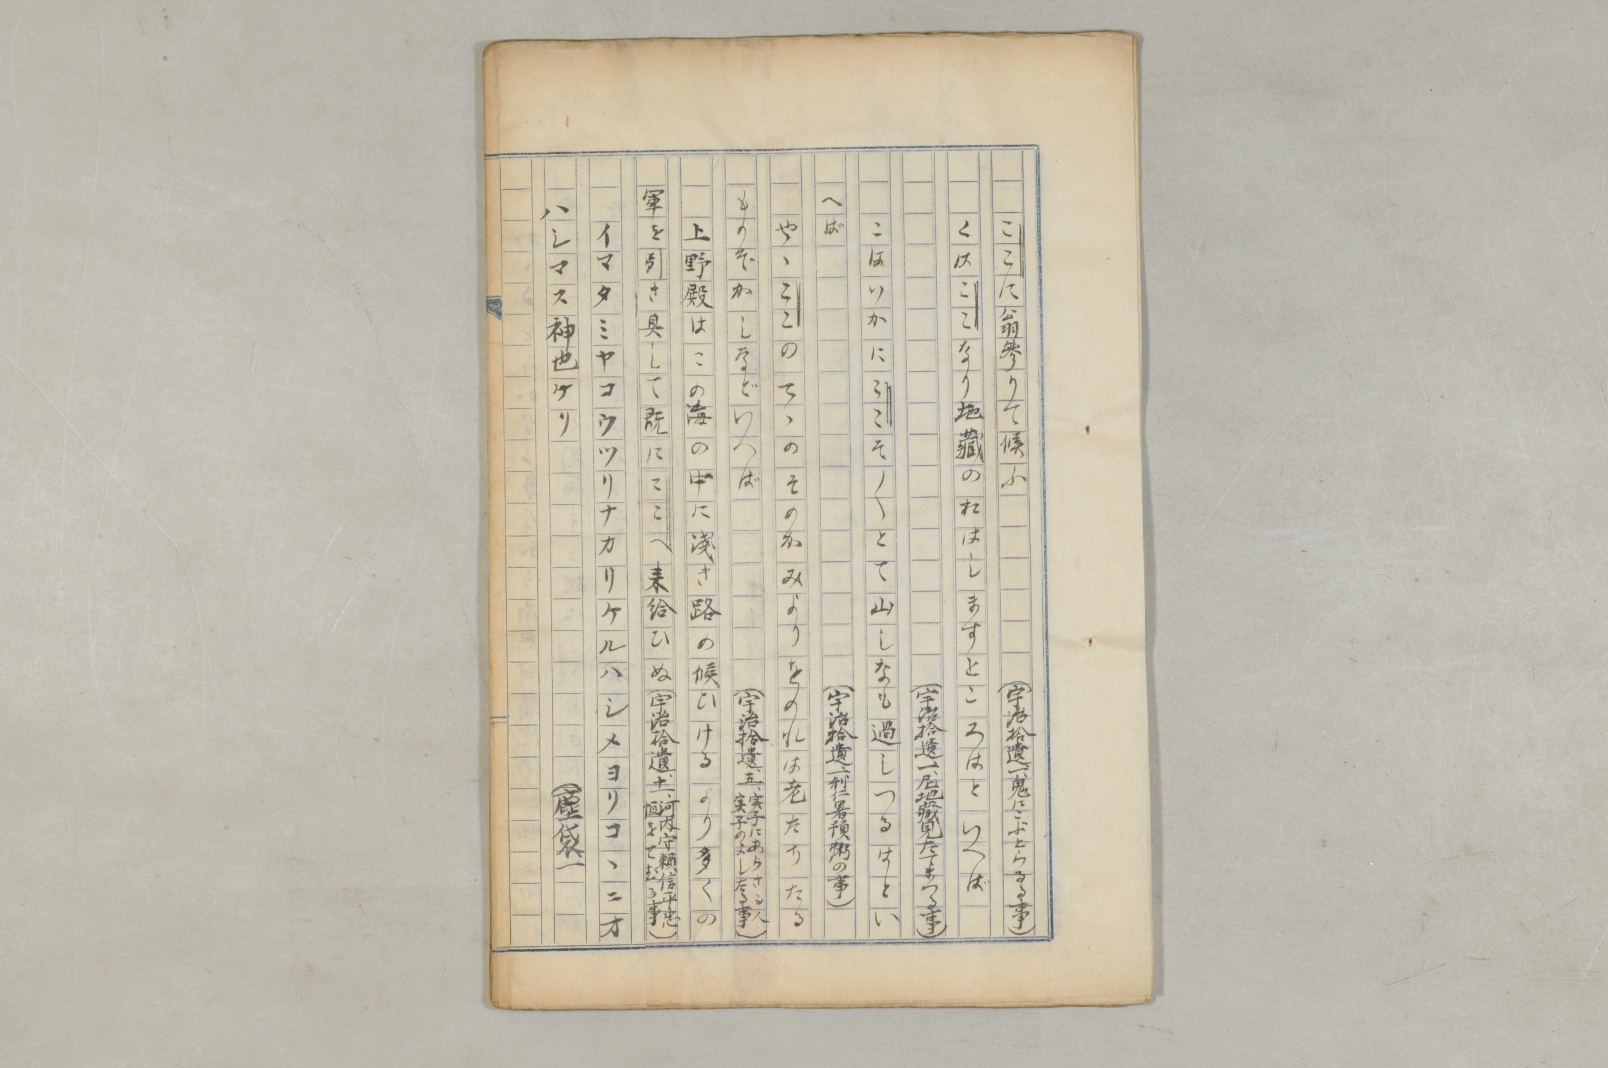 ここに翁參りて候ふ(宇治拾遺一、鬼にこぶとらるる事)
くはここなり地藏のおはしますところはといへば
(宇治拾遺一、尼地藏見たてまつる事)
こはいかにここそ〳〵とて山しなも過しつるはとい
へば(宇治拾遺一、利仁暑預粥の事)
やゝここのてゝのそのかみよりをのれは老たちたる
ものぞかしなどいへば(宇治拾遺五、実子にあらさる人実子のよしたる事)
上野殿はこの海の中に淺き路の候ひけるより多くの
軍を引き具して既にここへ来給ひぬ(宇治拾遺十一、河内守頼信平忠恒をせむる事)
イマタミヤコウツリナカリケルハシメヨリコヽニオ
ハシマス神也ケリ(塵袋一)